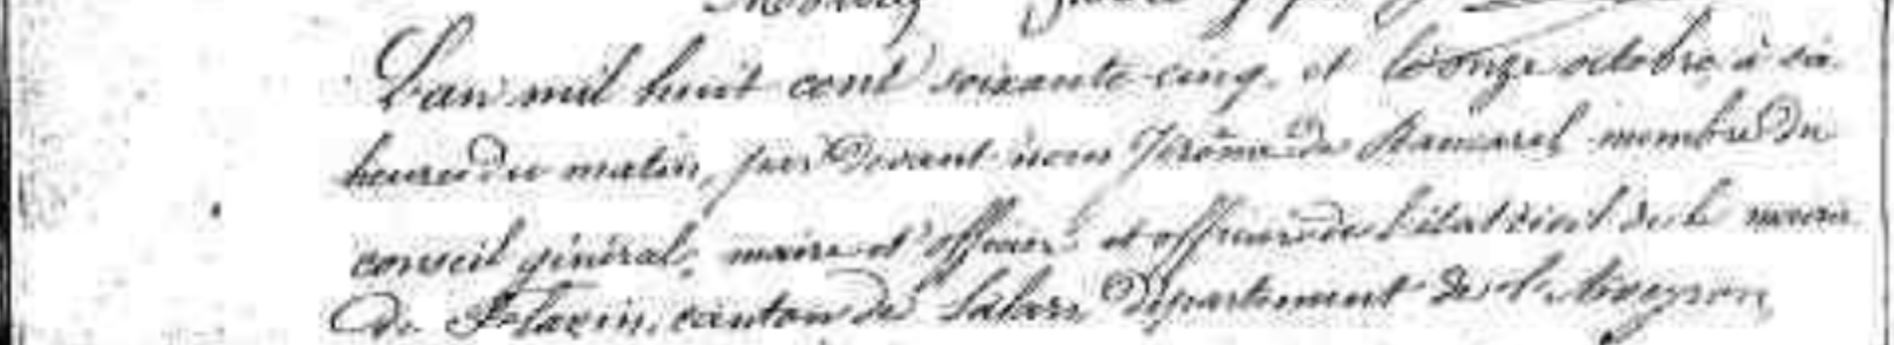 L'an mil huit cent soixante-cinq, et le onze octobre, à six
heures du matin, par devant nous Jérôme de Bancarel membre du
conseil général, maire et officier et officier de l'état civil de la mairie
de Flavin, canton de Salars, Département de l'Aveyron,